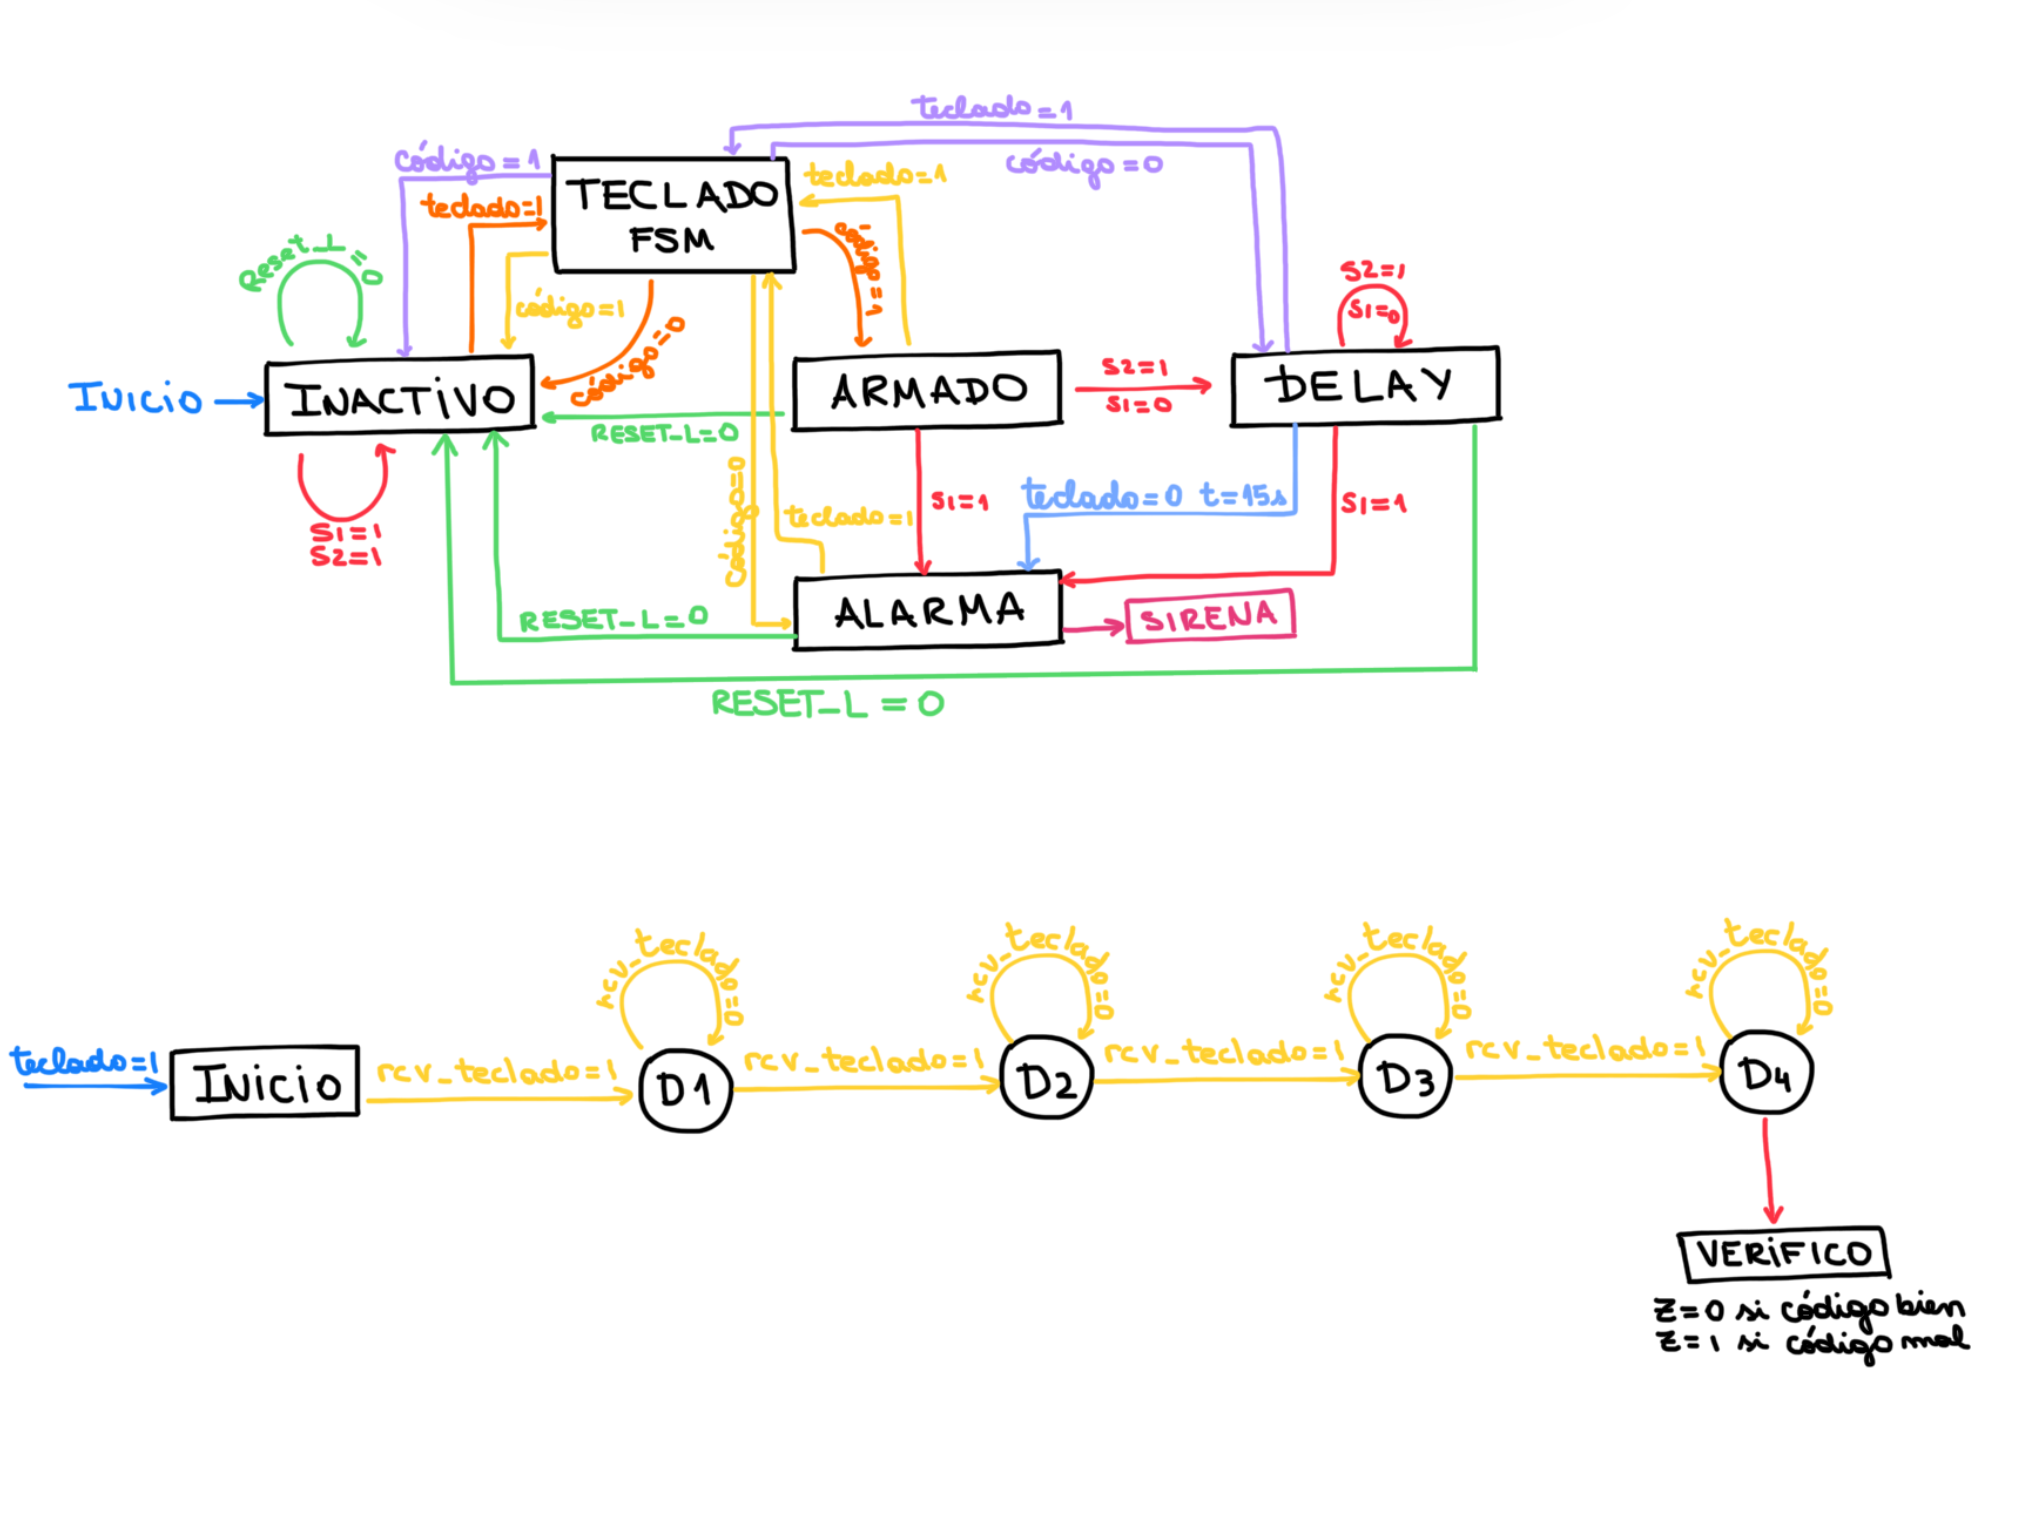 teclado=1
código=1
código=0
TECLADO
FSM
teclado=1
teclado=1
código=1
Reset_L=0
código=1
código=0
S2=1
S1=0
INICIO
INACTIVO
ARMADO
S2=1
S1=0
DELAY
RESET_L=0
S1=1
S2=1
código=0
teclado=1
S1=1
teclado=0 t=15s
S1=1
RESET_L=0
ALARMA
SIRENA
RESET_L=0
rcv_teclado=0
rcv_teclado=0
rcv_teclado=0
rcv_teclado=0
teclado=1
INICIO
rcv_teclado=1
D1
rcv_teclado=1
D2
rcv_teclado=1
D3
rcv_teclado=1
D4
VERIFICO
Z=0 si código bien
Z=1 si código mal